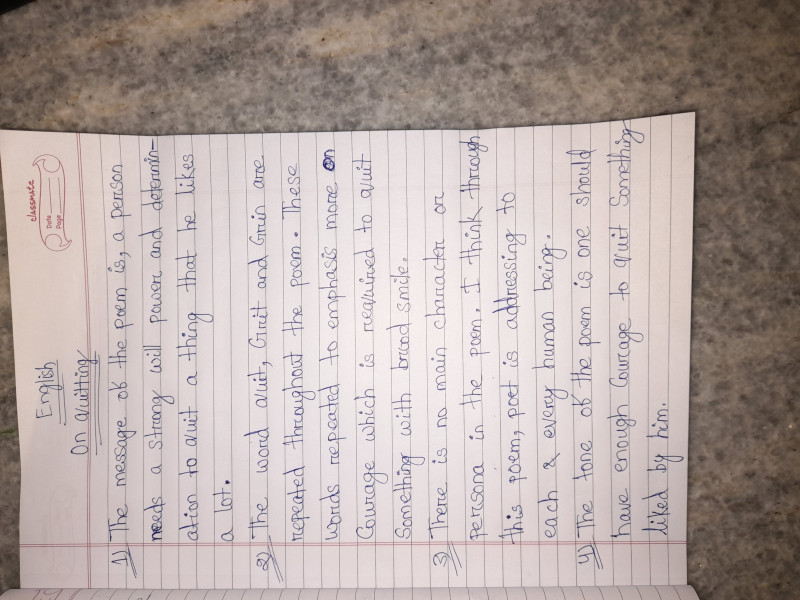 classmate
Date
Page
English
On Quitting
1) The message of the poem is, a person
needs a strong will power and determin-
ation to quit a thing that he likes
a lot.
2) The word quit, Grit and Grin are
repeated throughout the poem. These
words repeated to emphasis more on
Courage which is required to quit
Something with broad smile.
3) There is no main character or
persona in the poem. I think through
this poem, poet is addressing to
each & every human being.
4) The tone of the poem is one should
have enough Courage to quit Something
liked by him.